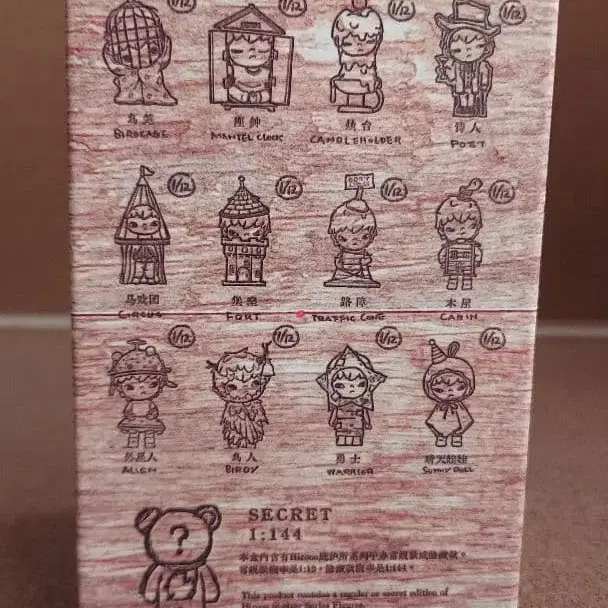 1/12 1/12 1/12 1/12
鸟笼 座钟 烛台 诗人
BIRDCAGE MANTEL CLOCK CANDLEHOLDER POET
1/12 1/12 1/12 1/12
马戏团 堡垒 路障 木屋
CIRCUS FORT TRAFFIC CONE CABIN
1/12 1/12 1/12 1/12
外星人 鸟人 勇士 晴天娃娃
ALIEN BIRDY WARRIOR SUNNY DOLL
?
SECRET
1:144
本盒内含有Hirono庇护所系列手办常规款或隐藏款。
常规款概率是1:12，隐藏款概率是1:144。
This product contains a regular or secret edition of
Hirono Shelter Series Figures.